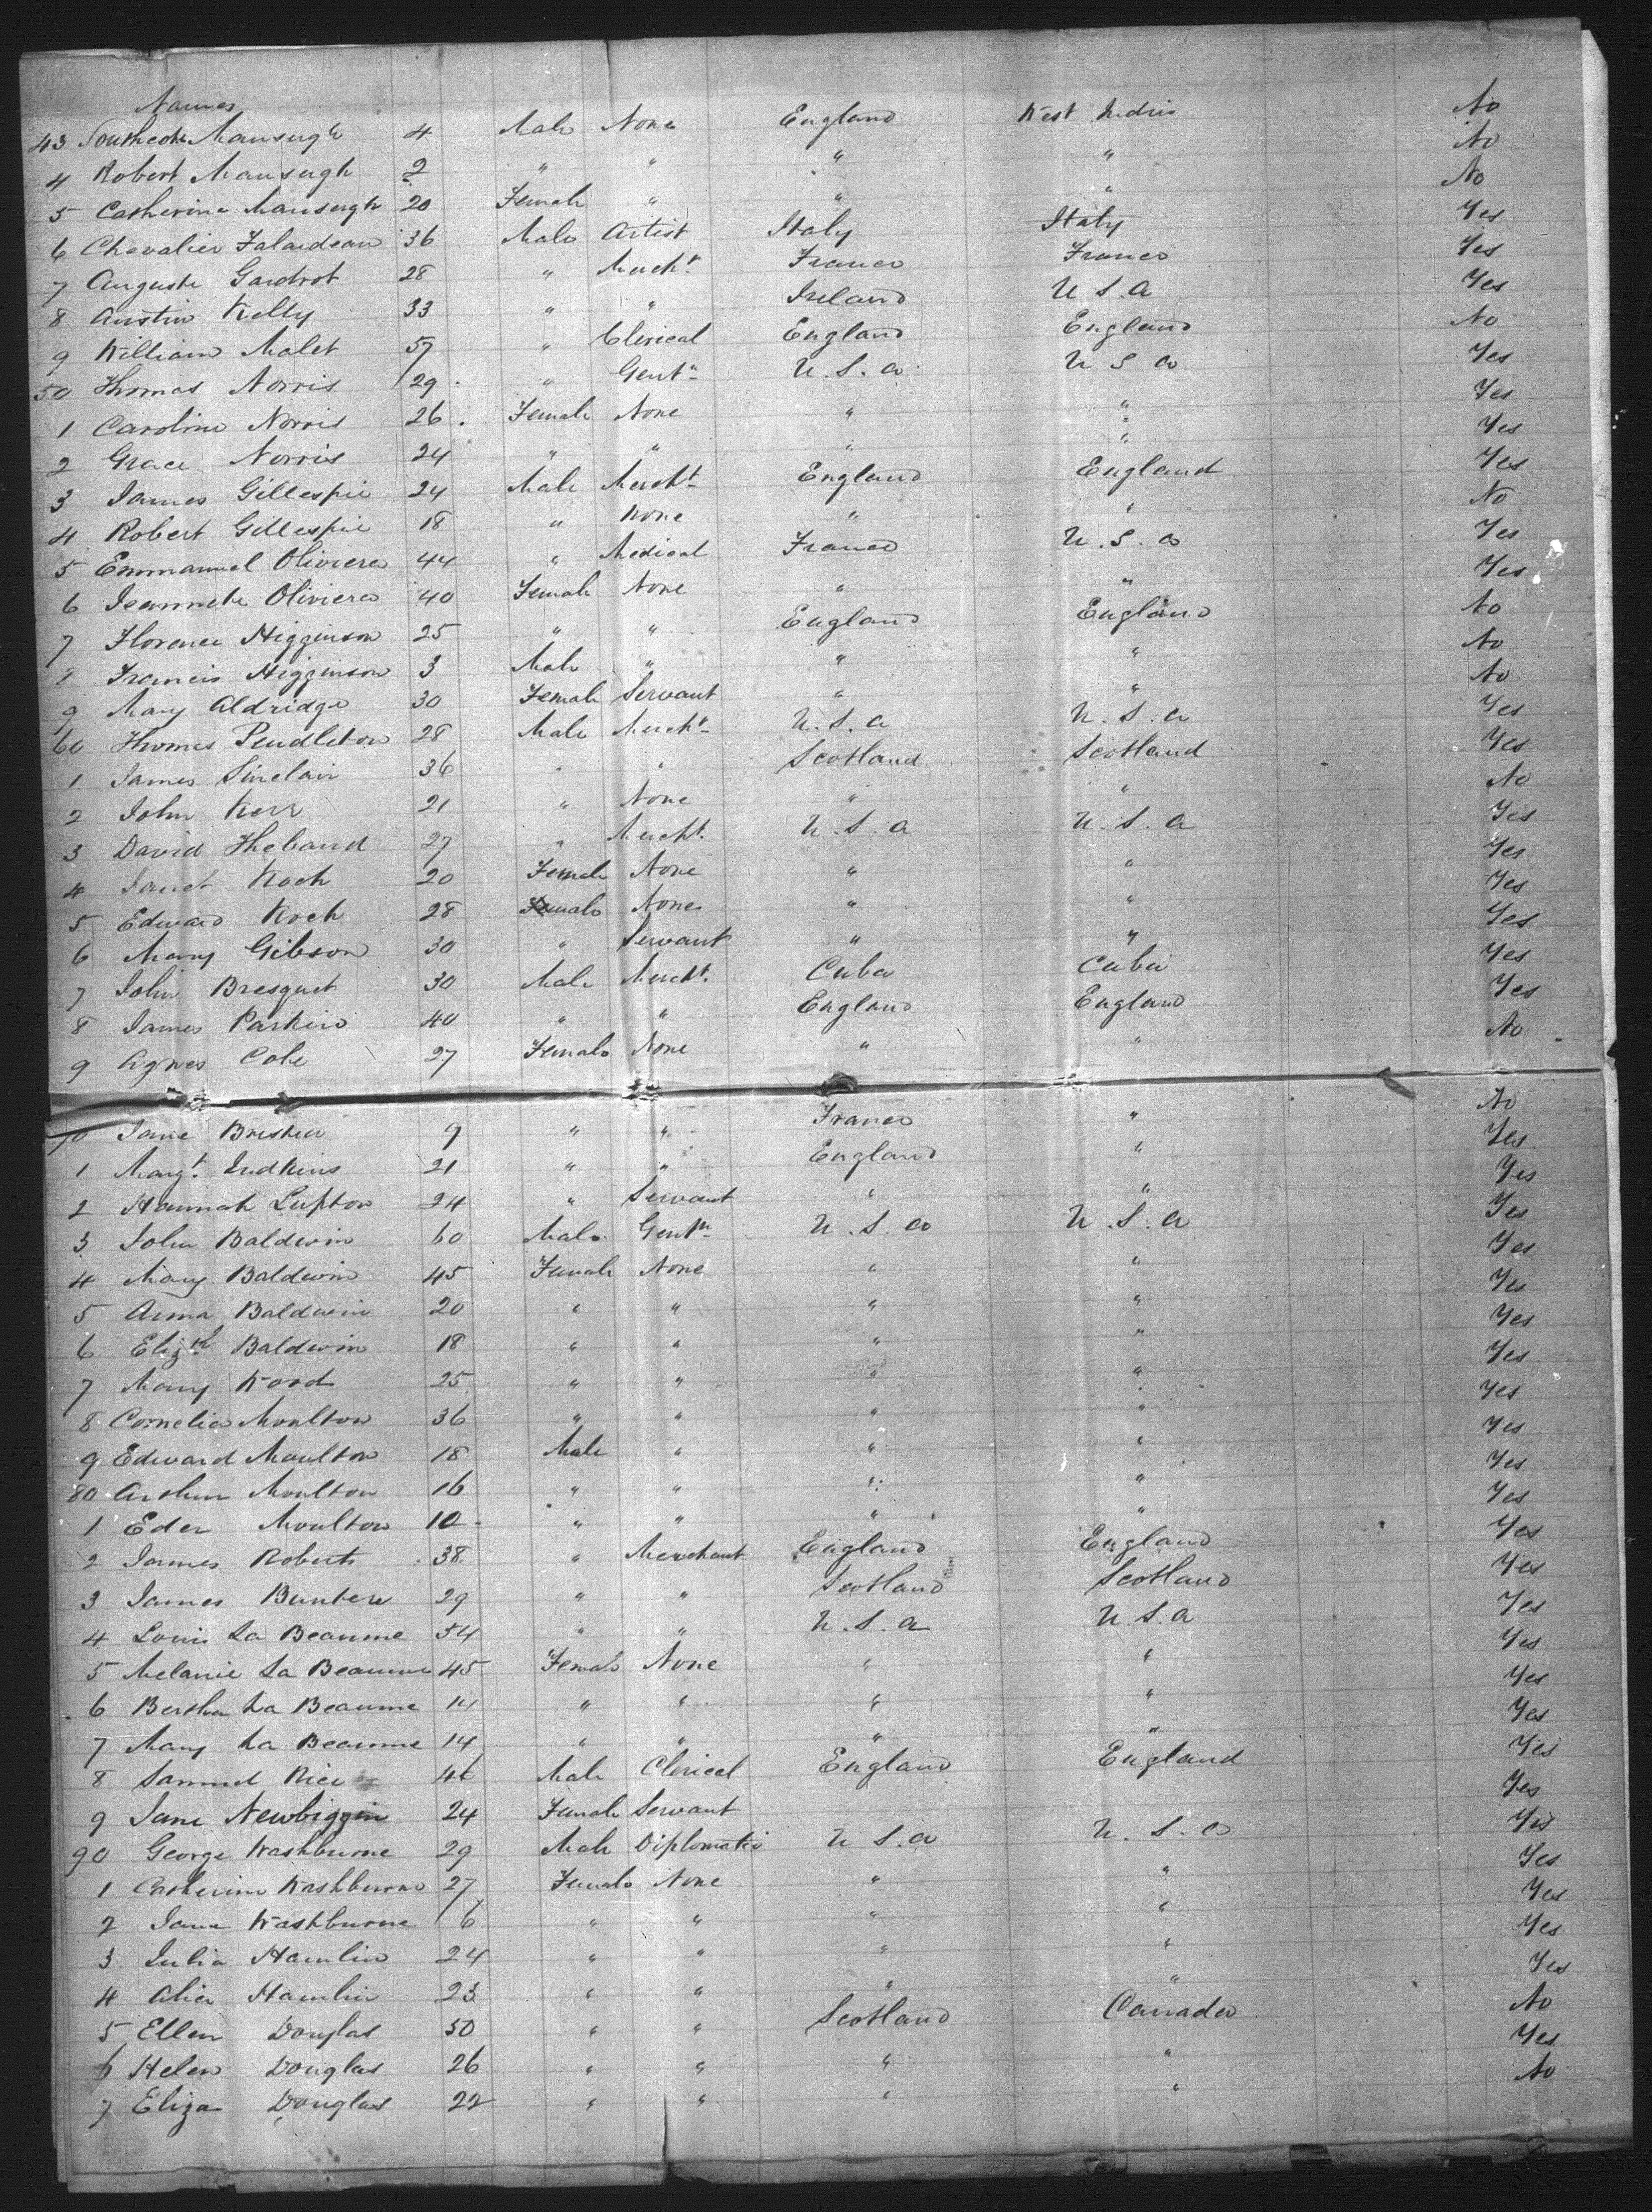 Names
43 Southcote Mansergh 4 Male None England West Indies No
4 Robert Mansergh 2 " " " " No
5 Catherine Mansergh 20 Female " " " No
6 Chevalier Falardeau 36 Male Artist Italy Italy Yes
7 Auguste Gardrot 28 " Mercht France France Yes
8 Austin Kelly 33 " " Ireland U.S.A Yes
9 William Malet 57 " Clerical England England No
50 Thomas Norris 29 " Gentn U.S.A U S A Yes
1 Caroline Norris 26 Female None " " Yes
2 Grace Norris 24 " " " " Yes
3 James Gillespie 24 Male Mercht England England Yes
4 Robert Gillespie 18 " None " " No
5 Emmanuel Oliviera 44 " Medical France U.S.A Yes
6 Jeannette Oliviera 40 Female None " " Yes
7 Florence Higginson 25 " " England England No
8 Francis Higginson 3 Male " " " No
9 Mary Aldridge 30 Female Servant " " No
60 Thomas Pendleton 28 Male Mercht U.S.A U.S.A Yes
1 James Sinclair 36 " " Scotland Scotland Yes
2 John Kerr 21 " None " " No
3 David Thebaud 27 " Mercht U.S.A U.S.A Yes
4 Janet Koch 20 Female None " " Yes
5 Edward Koch 28 Female None " " Yes
6 Mary Gibson 30 " Servant " " Yes
7 John Bresquet 30 Male Mercht Cuba Cuba Yes
8 James Parkin 40 " " England England Yes
9 Agnes Cole 27 Female None " " No
70 Jane 9 " " France " No
1 Margt Judkins 21 " " England " Yes
2 Hannah Lupton 24 " Servant " " Yes
3 John Baldwin 60 Male Gentn U.S.A U.S.A Yes
4 Mary Baldwin 45 Female None " " Yes
5 Anna Baldwin 20 " " " " Yes
6 Elizth Baldwin 18 " " " " Yes
7 Mary Ward 25 " " " " Yes
8 Cornelia Moulton 36 " " " " Yes
9 Edward Moulton 18 Male " " " Yes
80 Arthur Moulton 16 " " " " Yes
1 Eden Moulton 10 " " " " Yes
2 James Roberts 38 " Merchant England England Yes
3 James Bunten 29 " " Scotland Scotland Yes
4 Louis La Beaume 54 " " U.S.A U.S.A Yes
5 Melanie La Beaume 45 Female None " " Yes
6 Bertha La Beaume 14 " " " " Yes
7 Mary La Beaume 14 " " " " Yes
8 Samuel Rice Male Clerical England England Yes
9 Jane Newbiggin 24 Female Servant Yes
90 George Washburne 29 Male Diplomatic U S.A U.S.A Yes
1 Catherine Washburne 27 Female None " " Yes
2 Jane Washburne 6 " " " " Yes
3 Julia Hamlin 24 " " " " Yes
4 Alice Hamlin 23 " " " " Yes
5 Ellen Douglas 50 " " Scotland Canada No
6 Helen Douglas 26 " " " " Yes
7 Eliza Douglas 22 " " " " No